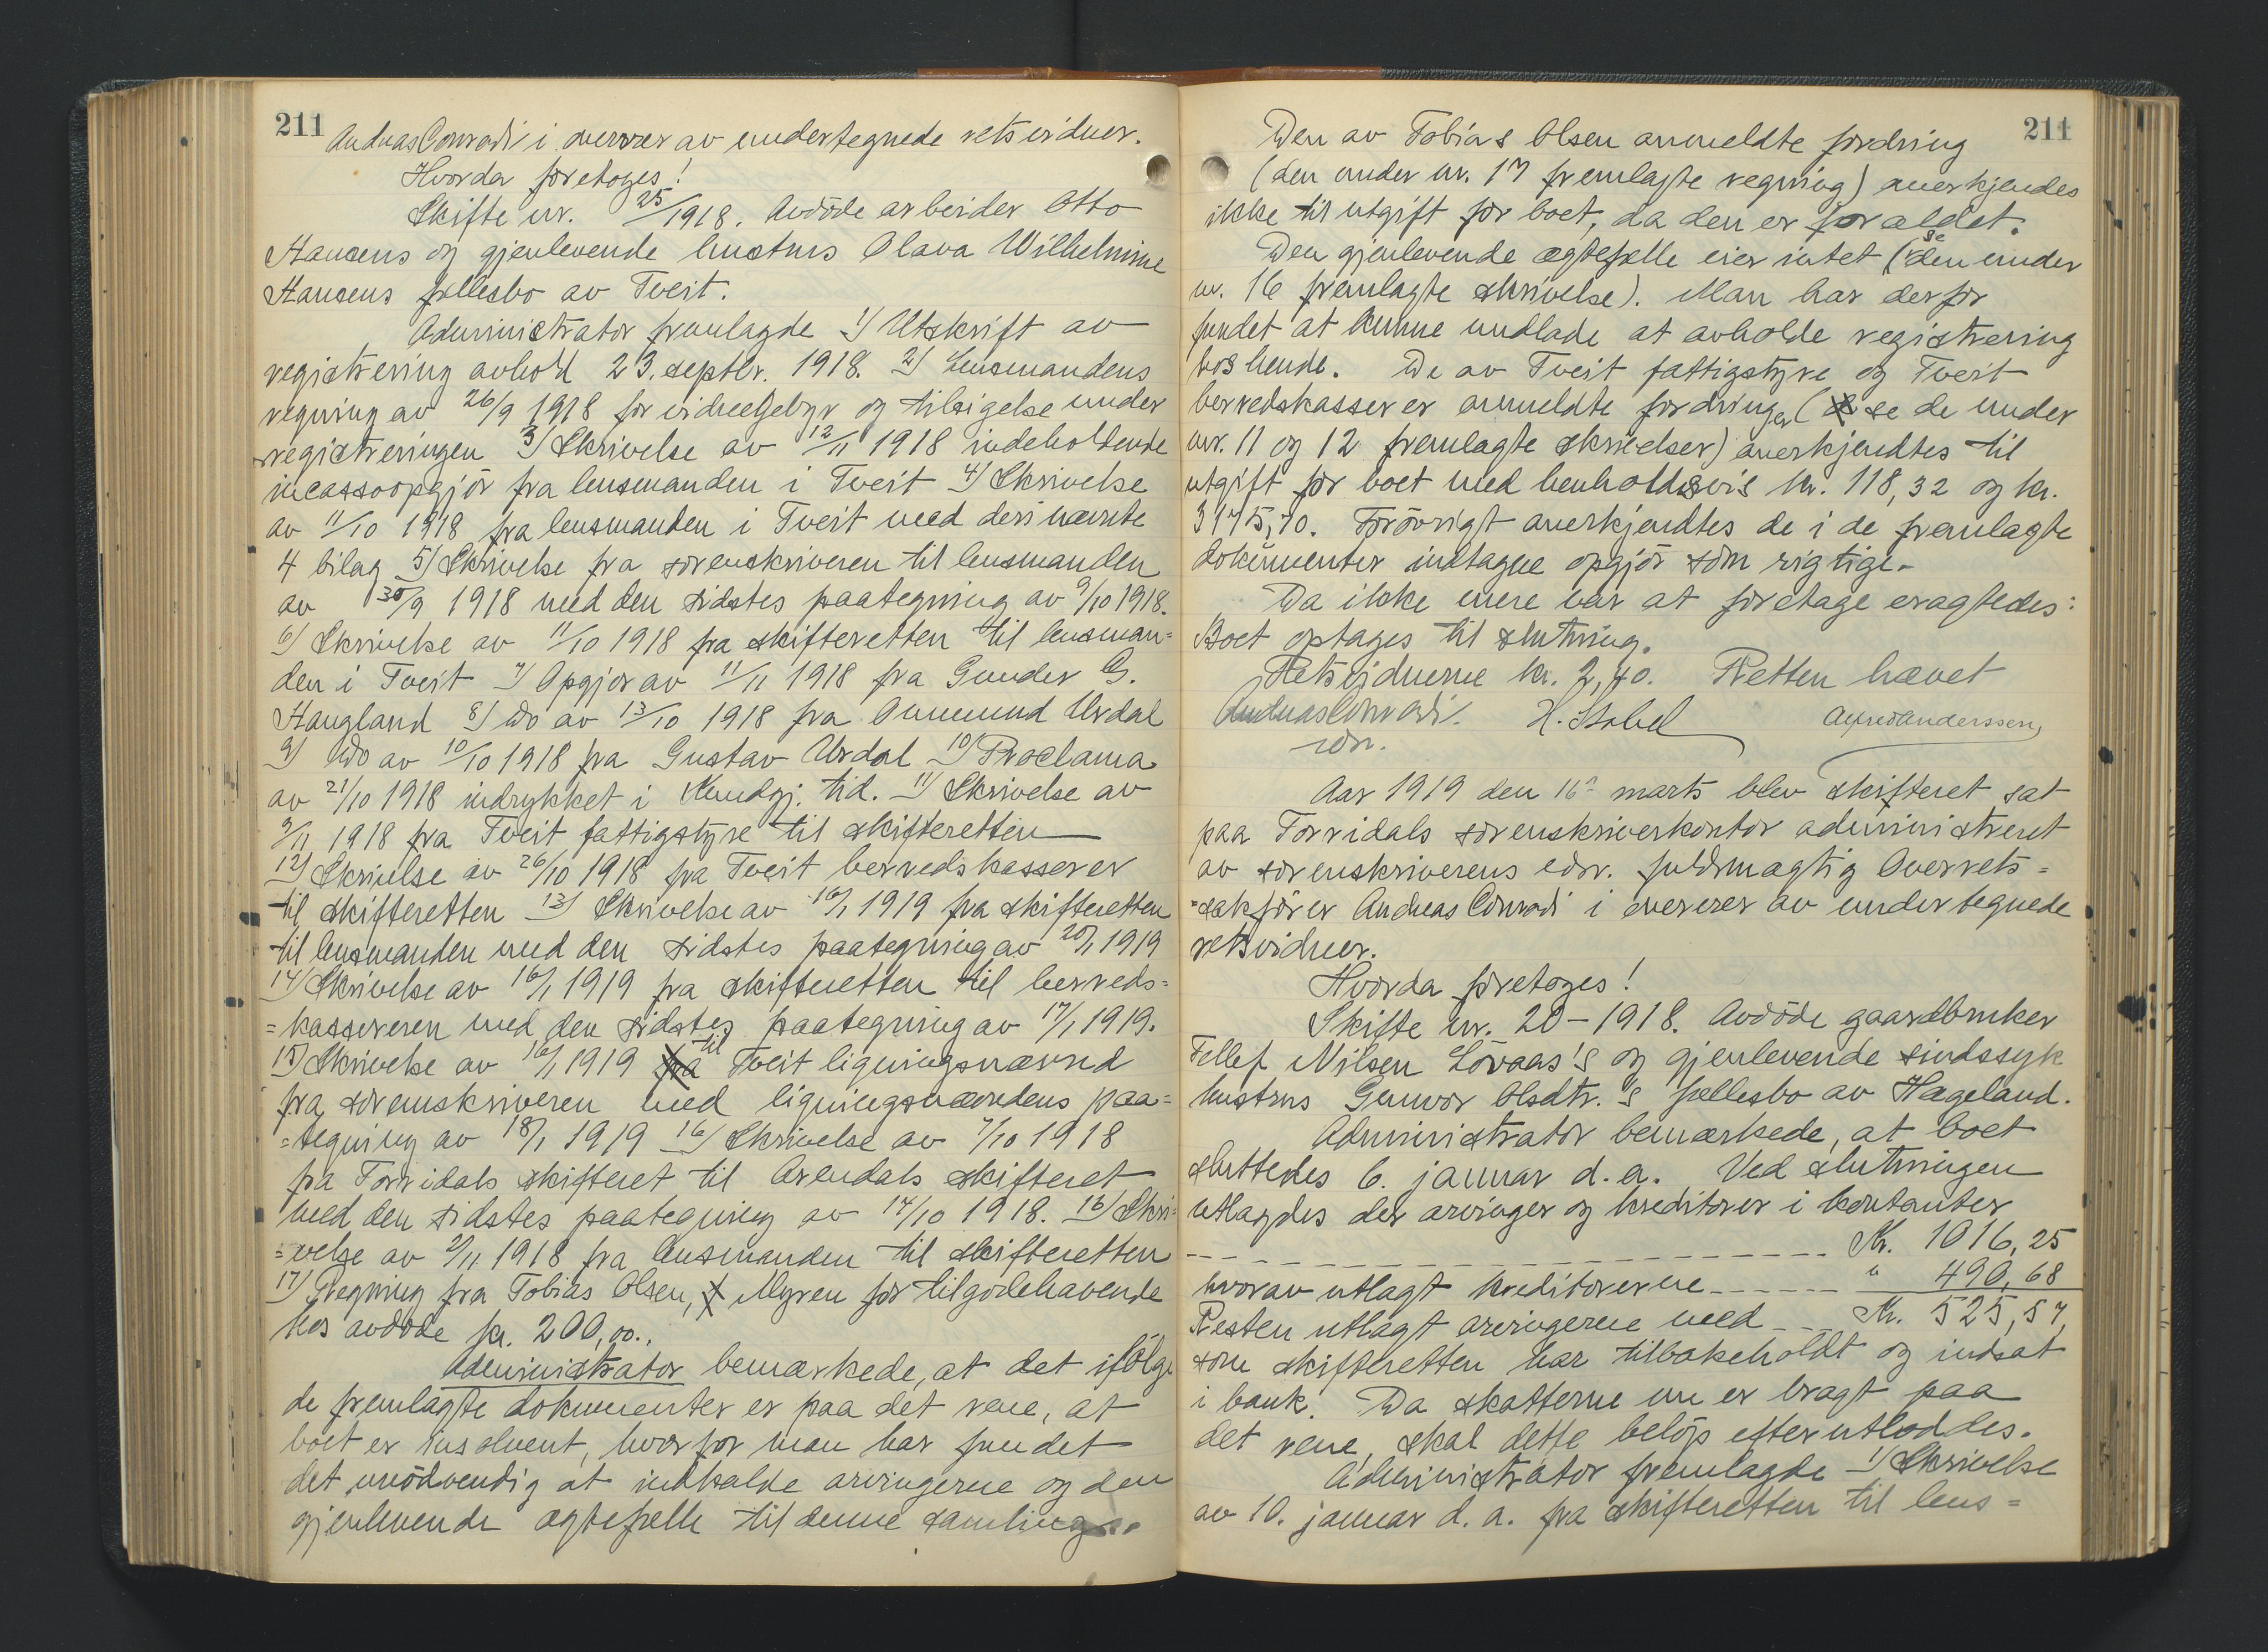 211
Andreas Conradi i overvær av undertegnede retsvidner.
Hvorda foretoges!
Skifte nr. 25/1918. Avdöde arbeider Otto
Hansens og gjenlevende hustrus Olava Wilhelmine
Hansens fællesbo av Tveit.
Administrator fremlagde 1) Utskrift av
registrering avhold 23. septbr. 1918. 2) Lensmandens
regning av 26/9 1918 for vidnegebyr og tilsigelse under
registreringen 3) Skrivelse av 12/11 1918 indeholdende
incassoopgjör fra lensmanden i Tveit 4) Skrivelse
av 11/10 1918 fra lensmanden i Tveit med deri nævnte
4 bilag 5) Skrivelse fra sorenskriveren til lensmanden
av 30/9 1918 med den sidstes paategning av 9/10 1918.
6) Skrivelse av 11/10 1918 fra skifteretten til lensman=
den i Tveit 7) Opgjör av 11/11 1918 fra Gunder G.
Haugland 8) Do av 13/10 1918 fra Ommund Urdal
9) Do av 10/10 1918 fra Gustav Urdal 10) Proclama
av 21/10 1918 indrykket i Kundgj. tid. 11) Skrivelse av
9/11 1918 fra Tveit fattigstyre til skifteretten
12) Skrivelse av 26/10 1918 fra Tveit herredskasserer
til skifteretten 13) Skrivelse av 16/1 1919 fra skifteretten
til lensmanden med den sidstes paategning av 20/1 1919
14) Skrivelse av 16/1 1919 fra skifteretten til herreds=
=kassereren med den sidstes paategning av 17/1 1919.
15) Skrivelse av 16/1 1919 til Tveit ligningsnævnd
fra sorenskriveren med ligningsnævndens paa=
=tegning av 18/1 1919 16) Skrivelse av 7/10 1918
fra Torridals skifteret til Arendals skifteret
med den sidstes paategning av 14/10 1918. 16) Skri=
=velse av 2/11 1918 fra lensmanden til skifteretten
17) Regning fra Tobias Olsen, Myren for tilgodehavende
hos avdöde kr. 200,00.
Administrator bemærkede, at det ifölge
de fremlagte dokumenter er paa det rene, at
boet er insolvent, hvorfor man har fundet
det unödvendig at indkalde arvingerne og den
gjenlevende ægtefælle til denne samling.
211
Den av Tobias Olsen anmeldte fordring
(den under nr. 17 fremlagte regning) anerkjendes
ikke til utgift for boet, da den er forældet.
Den gjenlevende ægtefælle eier intet (se den under
nr. 16 fremlagte skrivelse). Man har derfor
fundet at kunne undlade at avholde registrering
hos hende. De av Tveit fattigstyre og Tveit
herredskasserer anmeldte fordringer (se de under
nr. 11 og 12 fremlagte skrivelser) anerkjendtes til
utgift for boet med henholdsvis kr. 118,32 og kr.
3175,70. Forövrigt anerkjendtes de i de fremlagte
dokumenter indtagne opgjör som rigtige.
Da ikke mere var at foretage eragtedes:
Boet optages til slutning.
Retsvidnerne kr. 2,40. Retten hævet
Andreas Conradi. H. Stabel Alfred Anderssen,
edsv.
Aar 1919 den 16de marts blev skifteret sat
paa Torridals sorenskriverkontor administreret
av sorenskriverens edsv. fuldmægtig Overrets=
=sakförer Andreas Conradi i overvær av undertegnede
retsvidner.
Hvorda foretoges!
Skifte nr. 20-1918. Avdöde gaardbruker
Tellef Nilsen Lövaas's og gjenlevende sindssyk
hustrus Gunvor Olsdtr.'s fællesbo av Hægeland.
Administrator bemærkede, at boet
sluttedes 6. januar d.a. Ved slutningen
utlagdes der arvinger og kreditorer i kontanter
- - - - - - - - - - - - - - - - Kr. 1016,25
hvorav utlagt kreditorerne - - - - - - " 490,68
Resten utlagt arvingerne med - - - Kr. 525,57,
som skifteretten har tilbakeholdt og indsat
i bank. Da skatterne nu er bragt paa
det rene, skal dette belöp efterutloddes.
Administrator fremlagde 1) Skrivelse
av 10. januar d.a. fra skifteretten til lens=